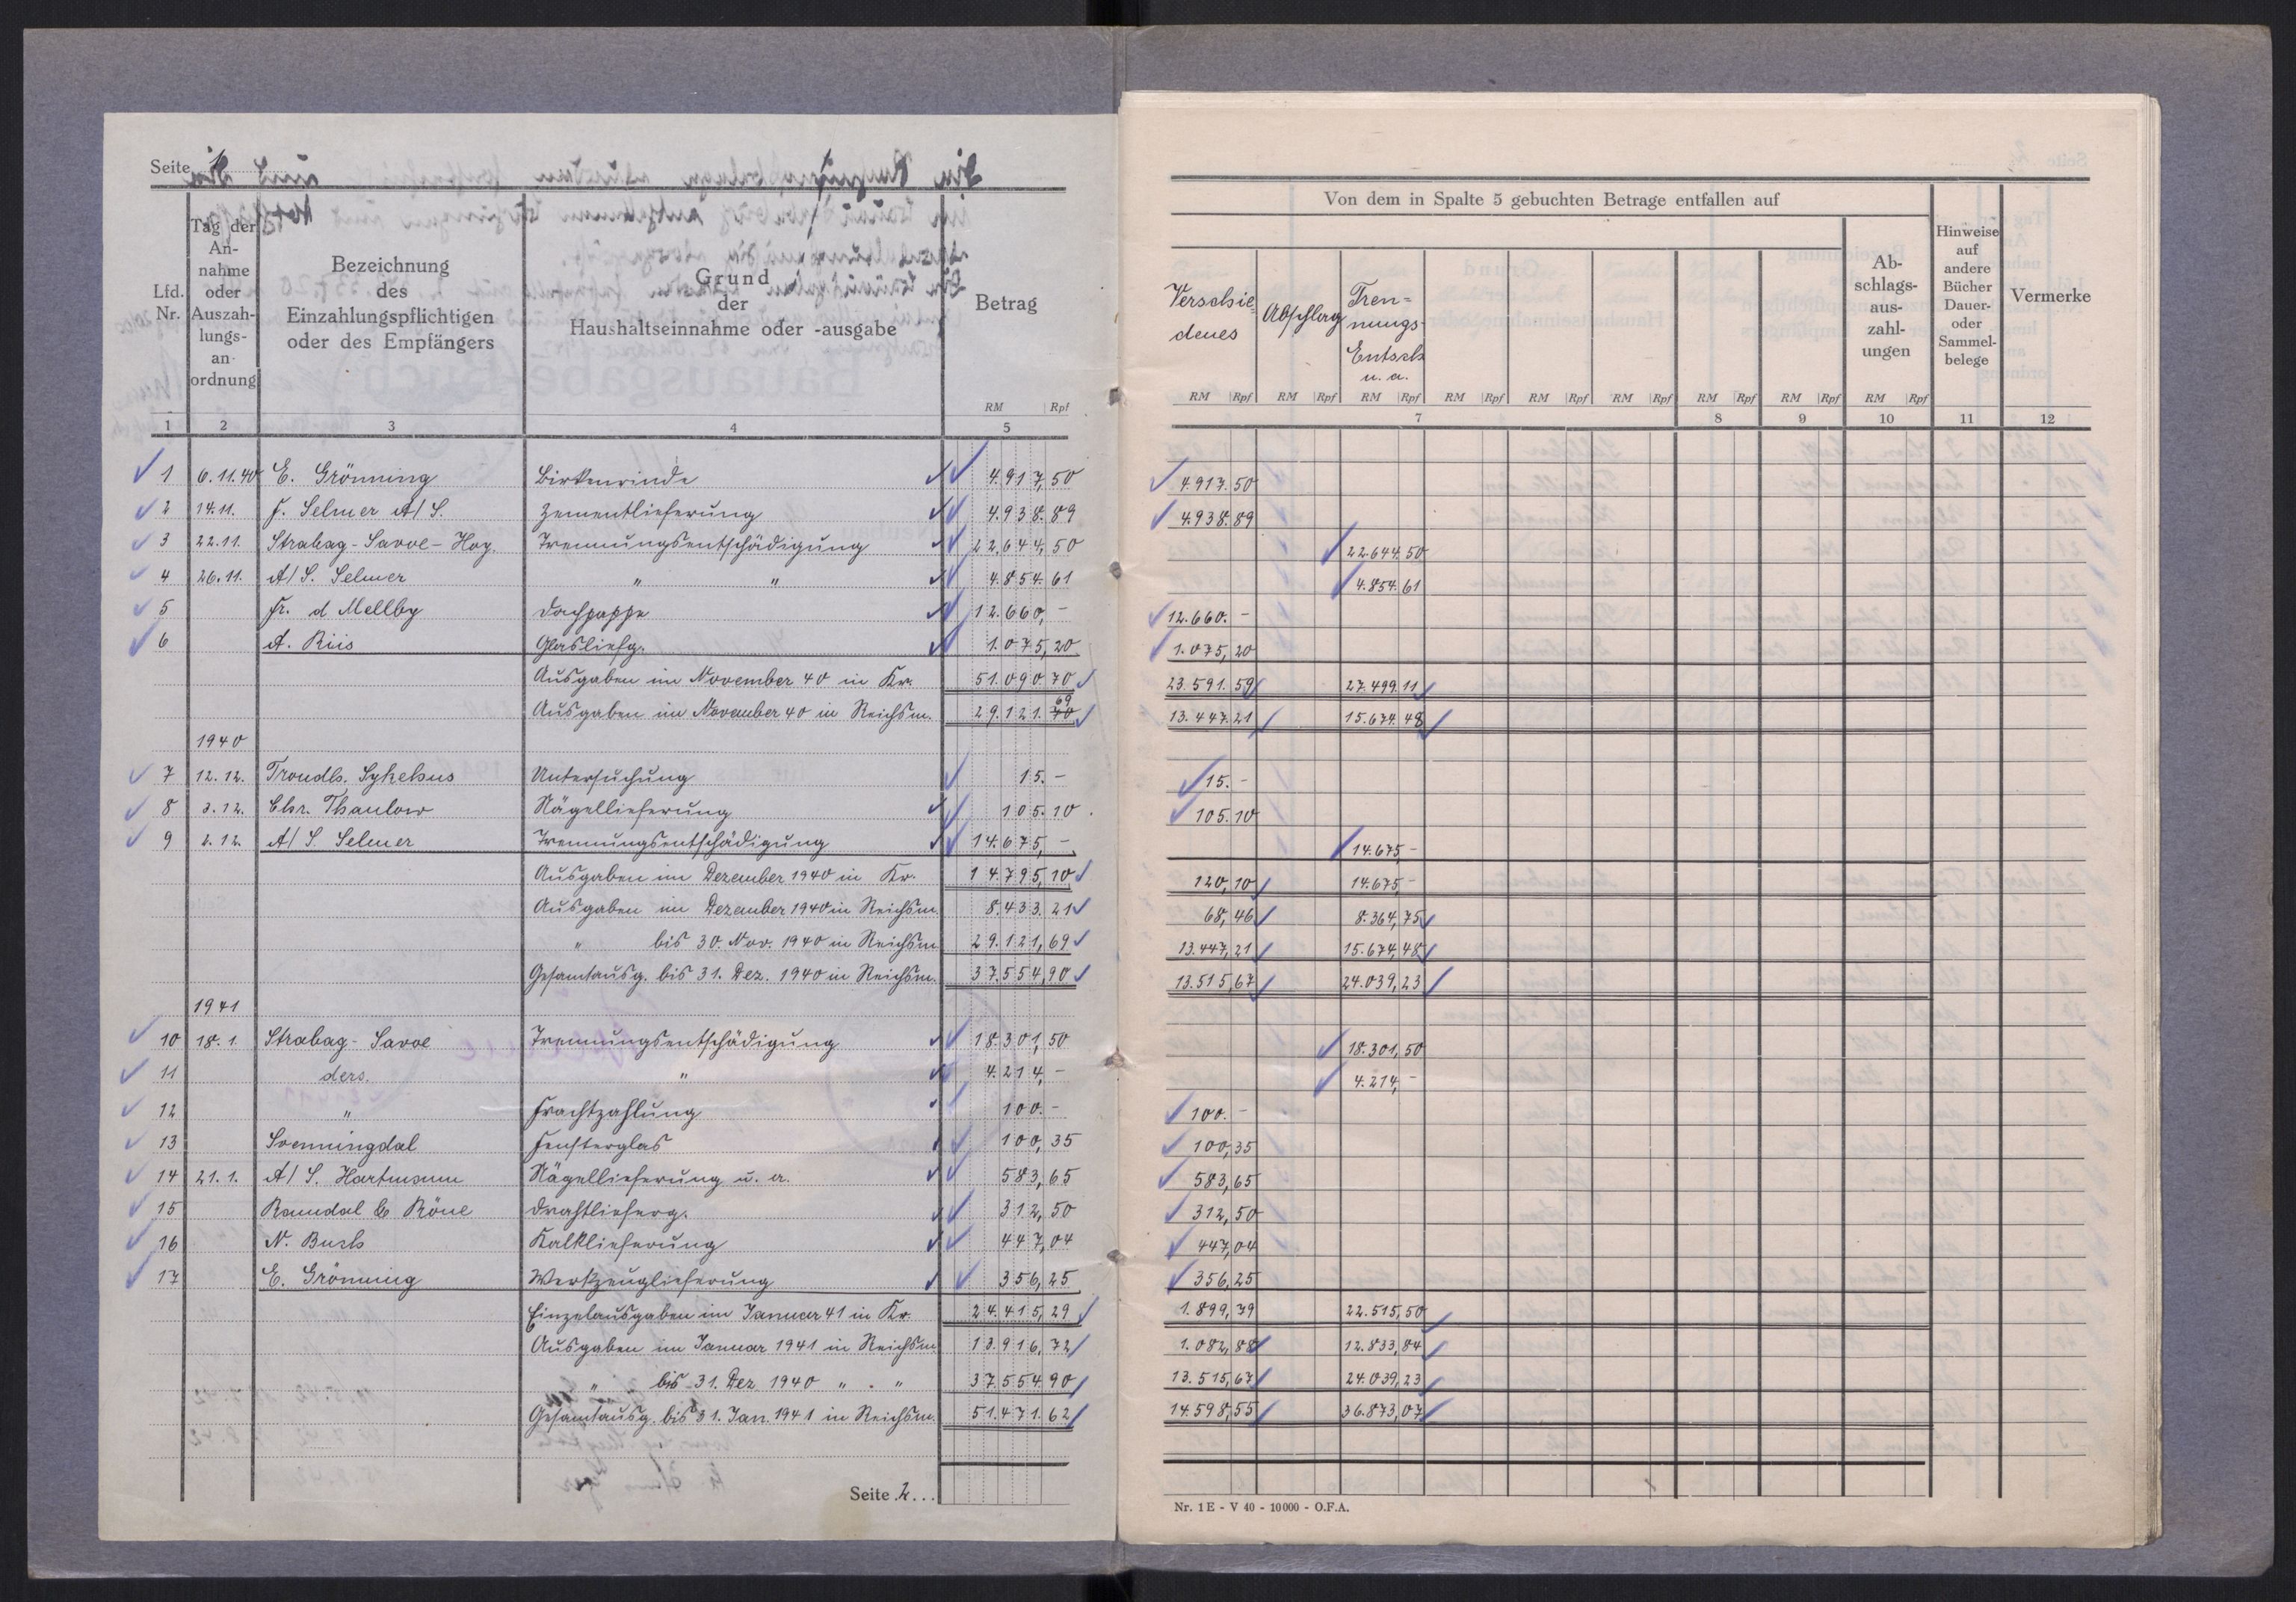 Seite 1
Lfd. Nr.
Tag der An-nahme oder Auszah-lungs-an-ordnung
Bezeichnung des Einzahlungspflichtigen oder des Empfängers
Grund der Haushaltseinnahme oder -ausgabe
Betrag
RM Rpf
1 2 3 4 5
1 6.11.40 E. Grönning Birkenrinde 4.917,50
2 14.11. F. Selmer A/S. Zementlieferung 4.938.89
3 22.11. Strabag-Savoe-Hog. Trennungsentschädigung 22.644,50
4 26.11. A/S. Selmer " " 4.854.61
5 Fr. d Mellby Dachpappe 12.660,-
6 A. Riis Glasliefg. 1.075,20
Ausgaben im November 40 in Kr. 51.090 70
Ausgaben im November 40 in Reichsm. 29.121. 70 69
1940
7 12.12. Trondh. Sykehus Untersuchung 15.-
8 3.12. Chr. Thaulow Nägellieferung 105.10
9 2.12. A/S. Selmer Trennungsentschädigung 14.675,-
Ausgaben im Dezember 1940 in Kr. 14.795,10
Ausgaben im Dezember 1940 in Reichsm. 8.433.21
" bis 30. Nov. 1940 in Reichsm. 29.121,69
Gesamtausg. bis 31. Dez. 1940 in Reichsm. 37.554,90
1941
10 18.1. Strabag-Savoe Trennungsentschädigung 18.301,50
11 ders. " 4.214,-
12 " Frachtzahlung 100.-
13 Svenningdal Fensterglas 100,35
14 21.1. A/S. Hartmann Nägellieferung u. a. 583,65
15 Ramdal & Röne Drahtlieferg. 312,50
16 N. Busch Kalklieferung 447,04
17 E. Grönning Werkzeuglieferung 356,25
Einzelausgaben im Januar 41 in Kr. 24.415,29
Ausgaben im Januar 1941 in Reichsm. 13.916,72
" bis 31. Dez 1940 " . " 37.554 90
Gesamtausg. bis 31. Jan. 1941 in Reichsm. 51.471.62
Seite 2...
Von dem in Spalte 5 gebuchten Betrage entfallen auf
Verschie-denes
Abschlag
Tren-nungs-Entsch u. a.
Ab-schlags-aus-zahl-ungen
Hinweise auf andere Bücher Dauer- oder Sammel-belege
Vermerke
RM Rpf RM Rpf RM Rpf RM Rpf RM Rpf RM Rpf RM Rpf RM Rpf RM Rpf
7 8 9 10 11 12
4.917.50
4.938.89
22.644.50
4.854.61
12.660.-
1.075,20
23.591.59 27.499.11
13.447.21 15.674.48
15.-
105.10
14.675,-
120,10 14.675,-
68,46 8.364,75
13.447,21 15.674,48
13.515,67 24.039,23
18.301,50
4.214,-
100.-
100,35
583,65
312,50
447,04
356,25
1.899,79 22.515,50
1.082,88 12.833,84
13.515,67 24.039,23
14.598,55 36.873,07
Nr. 1 E - V 40 - 10000 - O.F.A.